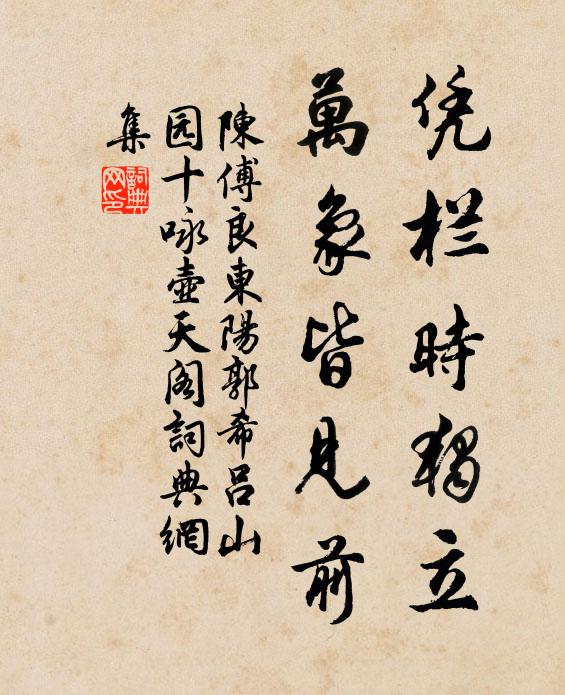 凭栏時獨立
萬象皆見前
陳傅良東陽郭希呂山
园十咏壺天阁詞典網
集
詞典
网印